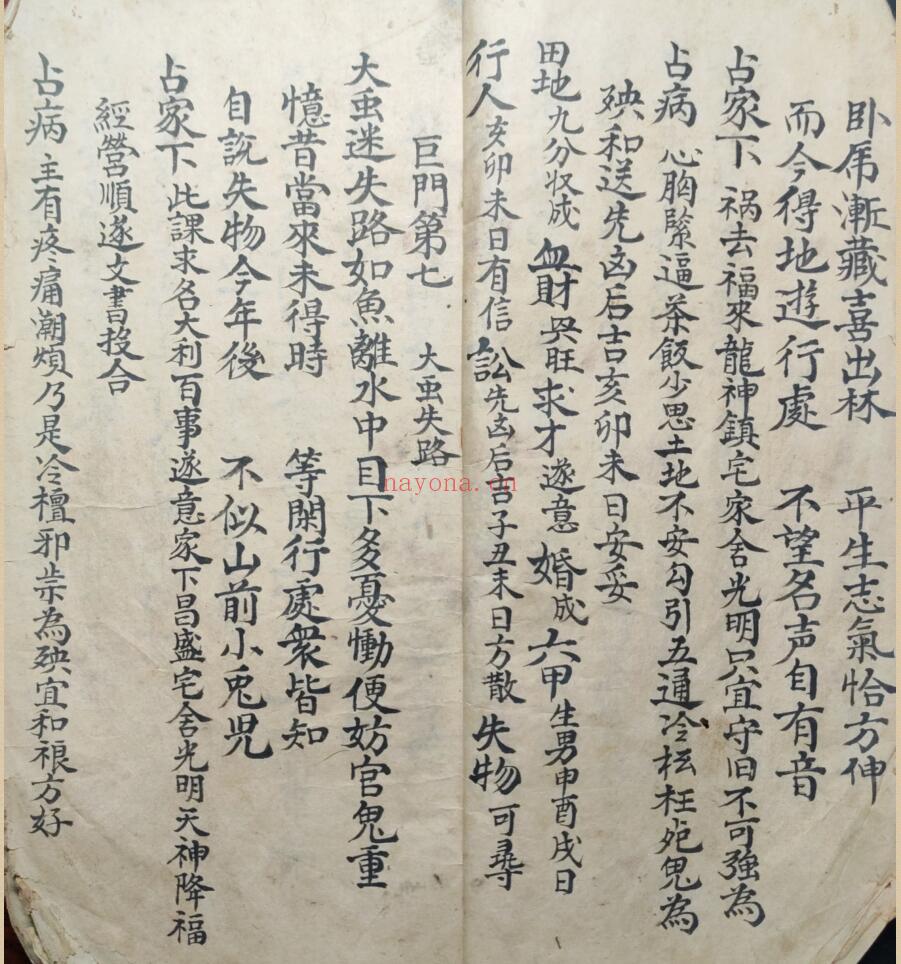 卧虎漸藏喜出林 平生志氣恰方伸
而今得地遊行處 不望名声自有音
占家下 祸去福來龍神鎮宅家舍光明只宜守旧不可強為
占病 心胸緊逼茶飯少思土地不安勾引五通冷枉死鬼為
殃和送先凶后吉亥卯未日安妥
田地九分收成 血財興旺 求才遂意 婚成 六甲生男申酉戌日
行人亥卯未日有信 訟先凶后吉子丑未日方散 失物可尋
巨門第七 大虫失路
大虫迷失路如魚離水中目下多憂慟便妨官鬼重
憶昔當來未得時 等閑行處衆皆知
自說失物今年後 不似山前小兎児
占家下 此課求名大利百事遂意家下昌盛宅舍光明天神降福
經營順遂文書投合
占病 主有疼痛潮煩乃是冷壇邪祟為殃宜和禳方好
nayona.cn